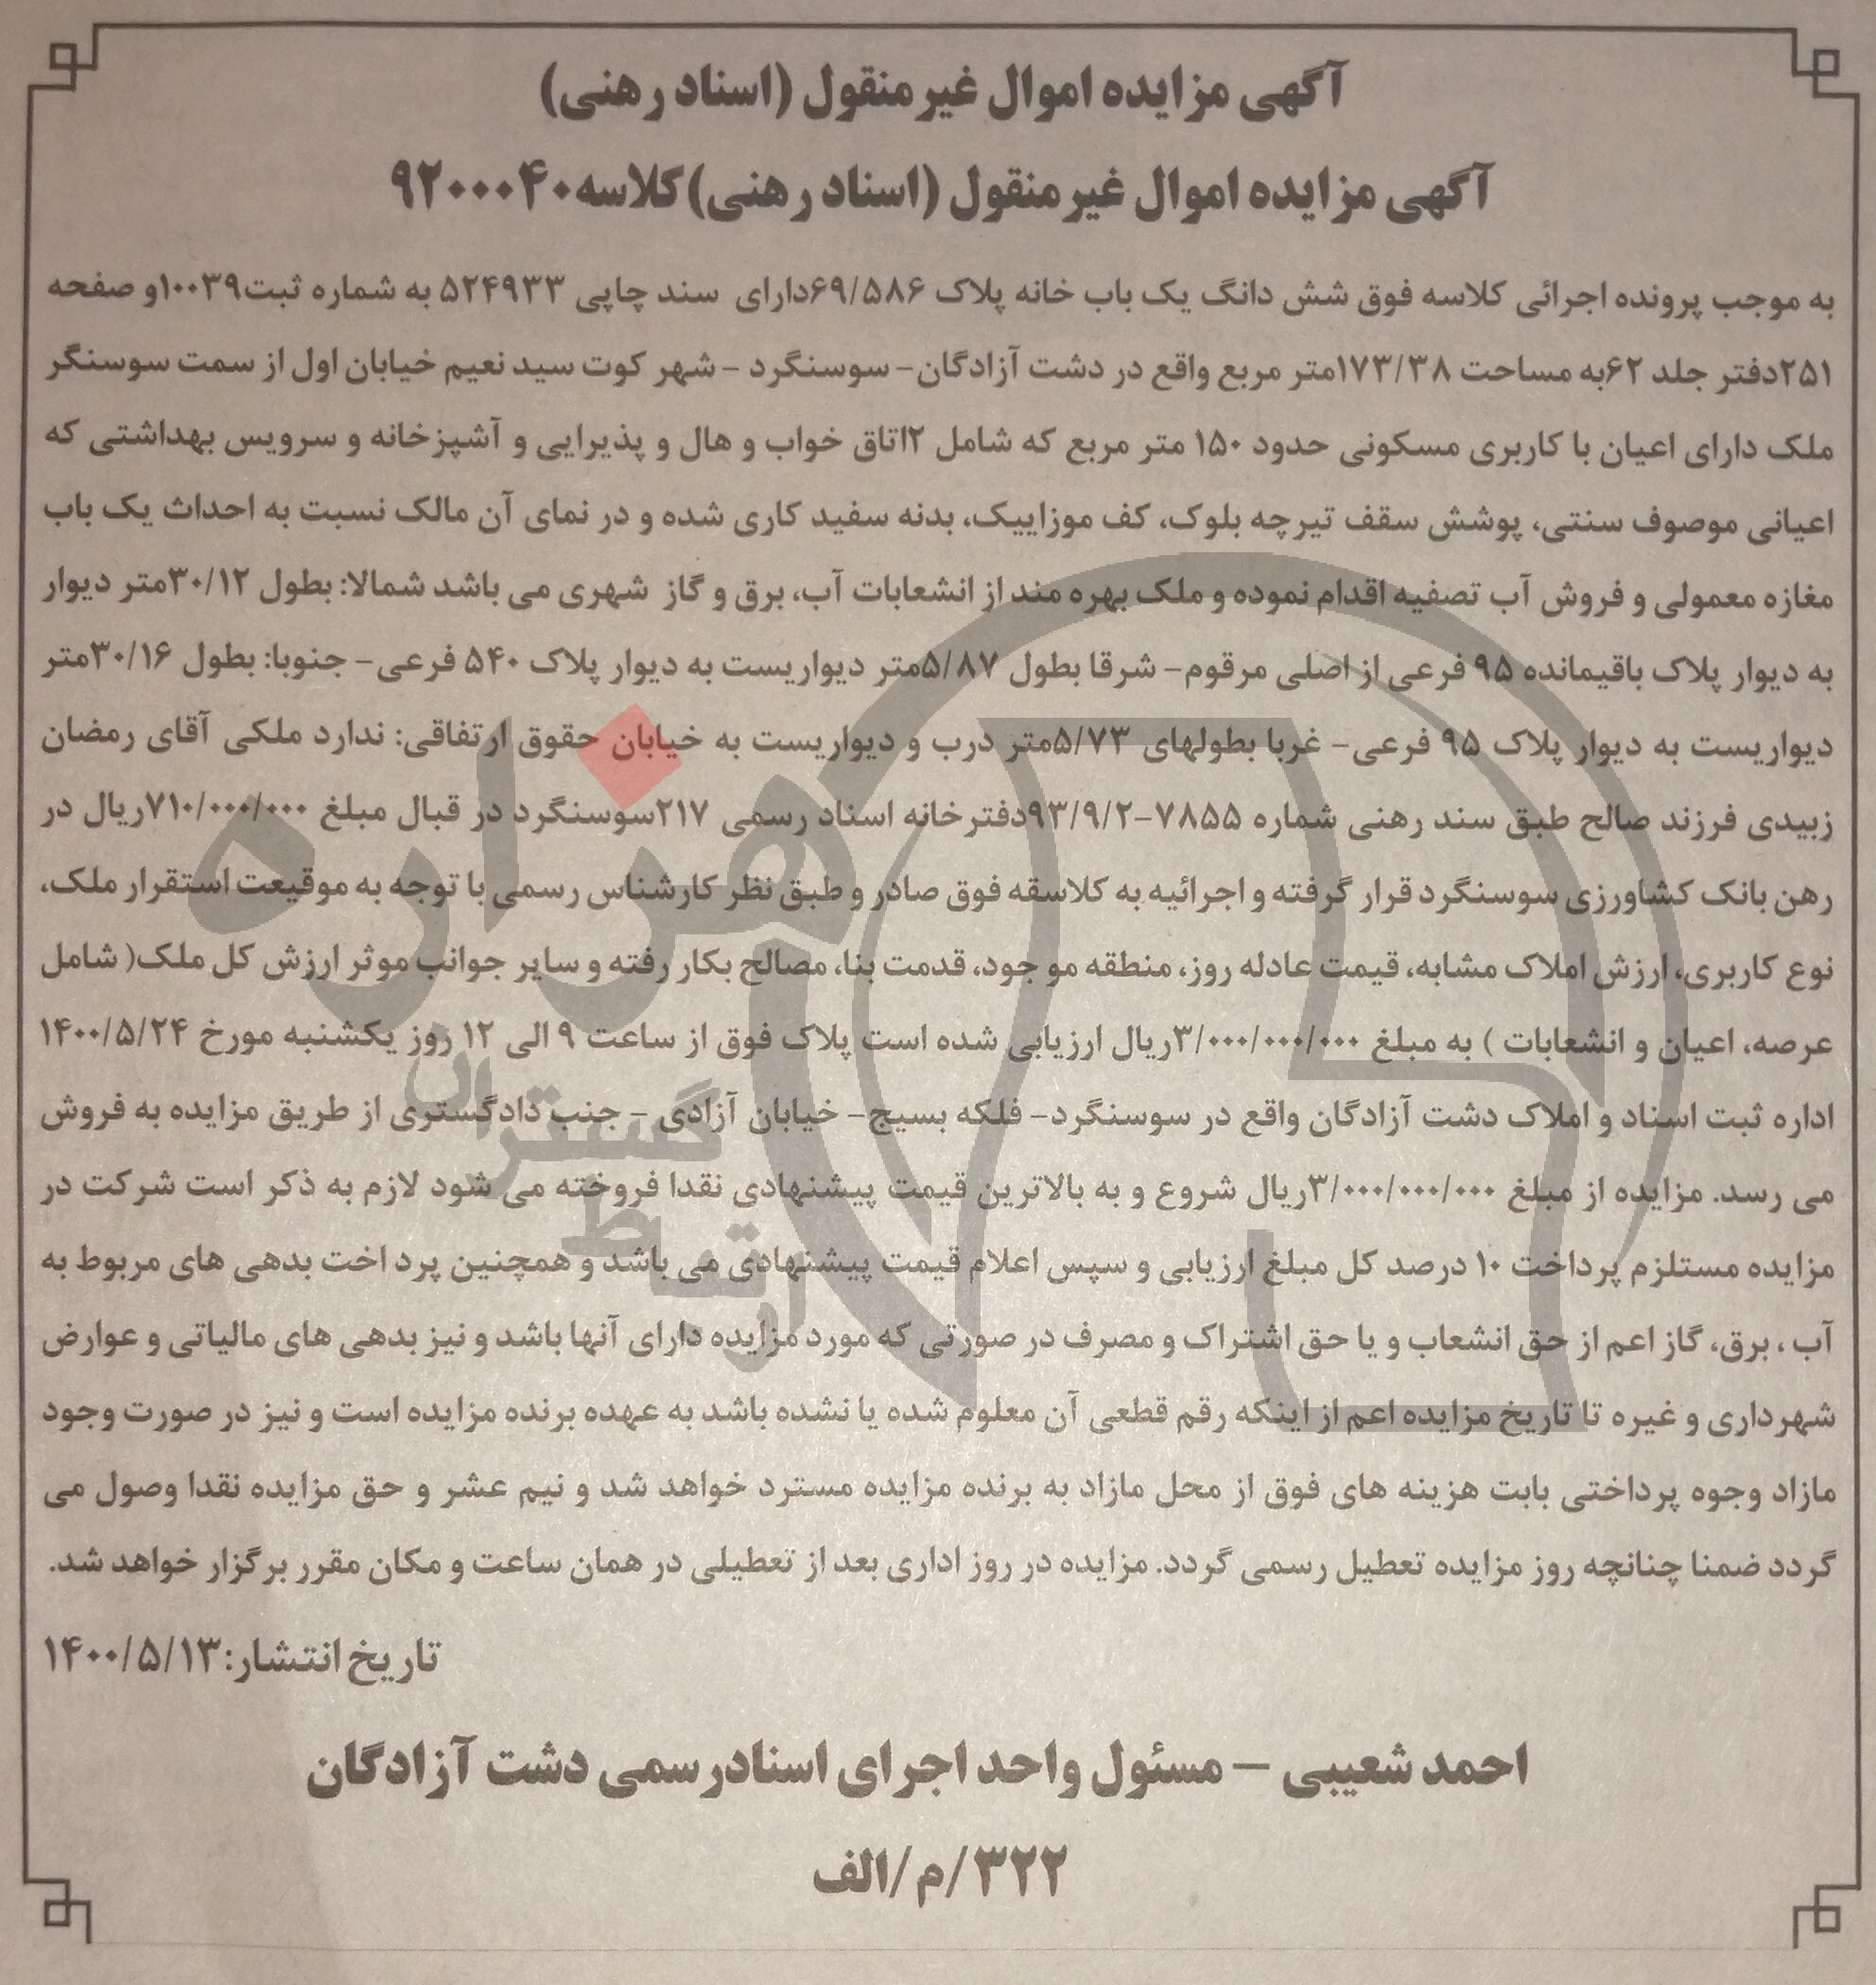 آگهی مزایده اموال غیر منقول (اسناد رهنی)
آگهی مزایده اموال غیر منقول (اسناد رهنی)کلاسه۹۲۰۰۰۴۰
به موجب پرونده اجرائی کلاسه فوق شش دانگ یک باب خانه پلاک ۶۹/۵۸۶دارای سند چاپی ۵۲۴۹۳۳ به شماره ثبت۱۰۰۳۹و صفحه
۲۵۱دفتر جلد ۶۲به مساحت ۱۷۳/۳۸متر مربع واقع در دشت آزادگان- سوسنگرد - شهر کوت سید نعیم خیابان اول از سمت سوسنگر
ملک دارای اعیان با کاربری مسکونی حدود ۱۵۰ متر مربع که شامل ۲اتاق خواب و هال و پذیرایی و آشپزخانه و سرویس بهداشتی که
اعیانی موصوف سنتی، پوشش سقف تیرچه بلوک، کف موزاییک، بدنه سفید کاری شده و در نمای آن مالک نسبت به احداث یک باب
مغازه معمولی و فروش آب تصفیه اقدام نموده و ملک بهره مند از انشعابات آب، برق و گاز شهری می باشد شمالا: بطول ۳۰/۱۲متر دیوار
به دیوار پلاک باقیمانده ۹۵ فرعی از اصلی مرقوم- شرقا بطول ۵/۸۷متر دیواریست به دیوار پلاک ۵۴۰ فرعی- جنوبا: بطول ۳۰/۱۶متر
دیواریست به دیوار پلاک ۹۵ فرعی- غربا بطولهای ۵/۷۳متر درب و دیواریست به خیابان حقوق ارتفاقی: ندارد ملکی آقای رمضان
زبیدی فرزند صالح طبق سند رهنی شماره ۷۸۵۵-۹۳/۹/۲دفترخانه اسناد رسمی ۲۱۷سوسنگرد در قبال مبلغ ۷۱۰/۰۰۰/۰۰۰ریال در
رهن بانک کشاورزی سوسنگرد قرار گرفته و اجرائیه به کلاسقه فوق صادر و طبق نظر کارشناس رسمی با توجه به موقیعت استقرار ملک،
نوع کاربری، ارزش املاک مشابه، قیمت عادله روز، منطقه مو جود، قدمت بنا، مصالح بکار رفته و سایر جوانب موثر ارزش کل ملک( شامل
عرصه، اعیان و انشعابات ) به مبلغ ۳/۰۰۰/۰۰۰/۰۰۰ریال ارزیابی شده است پلاک فوق از ساعت ۹ الی ۱۲ روز یکشنبه مورخ ۱۴۰۰/۵/۲۴
اداره ثبت اسناد و املاک دشت آزادگان واقع در سوسنگرد- فلکه بسیج- خیابان آزادی - جنب دادگستری از طریق مزایده به فروش
می رسد. مزایده از مبلغ ۳/۰۰۰/۰۰۰/۰۰۰ریال شروع و به بالاترین قیمت پیشنهادی نقدا فروخته می شود لازم به ذکر است شرکت در
مزایده مستلزم پرداخت ۱۰ درصد کل مبلغ ارزیابی و سپس اعلام قیمت پیشنهادی می باشد و همچنین پرد اخت بدهی های مربوط به
آب ، برق، گاز اعم از حق انشعاب و یا حق اشتراک و مصرف در صورتی که مورد مزایده دارای آنها باشد و نیز بدهی های مالیاتی و عوارض
شهرداری و غیره تا تاریخ مزایده اعم از اینکه رقم قطعی آن معلوم شده یا نشده باشد به عهده برنده مزایده است و نیز در صورت وجود
مازاد وجوه پرداختی بابت هزینه های فوق از محل مازاد به برنده مزایده مسترد خواهد شد و نیم عشر و حق مزایده نقدا وصول می
گردد ضمنا چنانچه روز مزایده تعطیل رسمی گردد. مزایده در روز اداری بعد از تعطیلی در همان ساعت و مکان مقرر برگزار خواهد شد.
تاریخ انتشار:۱۴۰۰/۵/۱۳
احمد شعیبی - مسئول واحد اجرای اسنادرسمی دشت آزادگان
۳۲۲/م/الف
هزاره
گستران
ارتباط